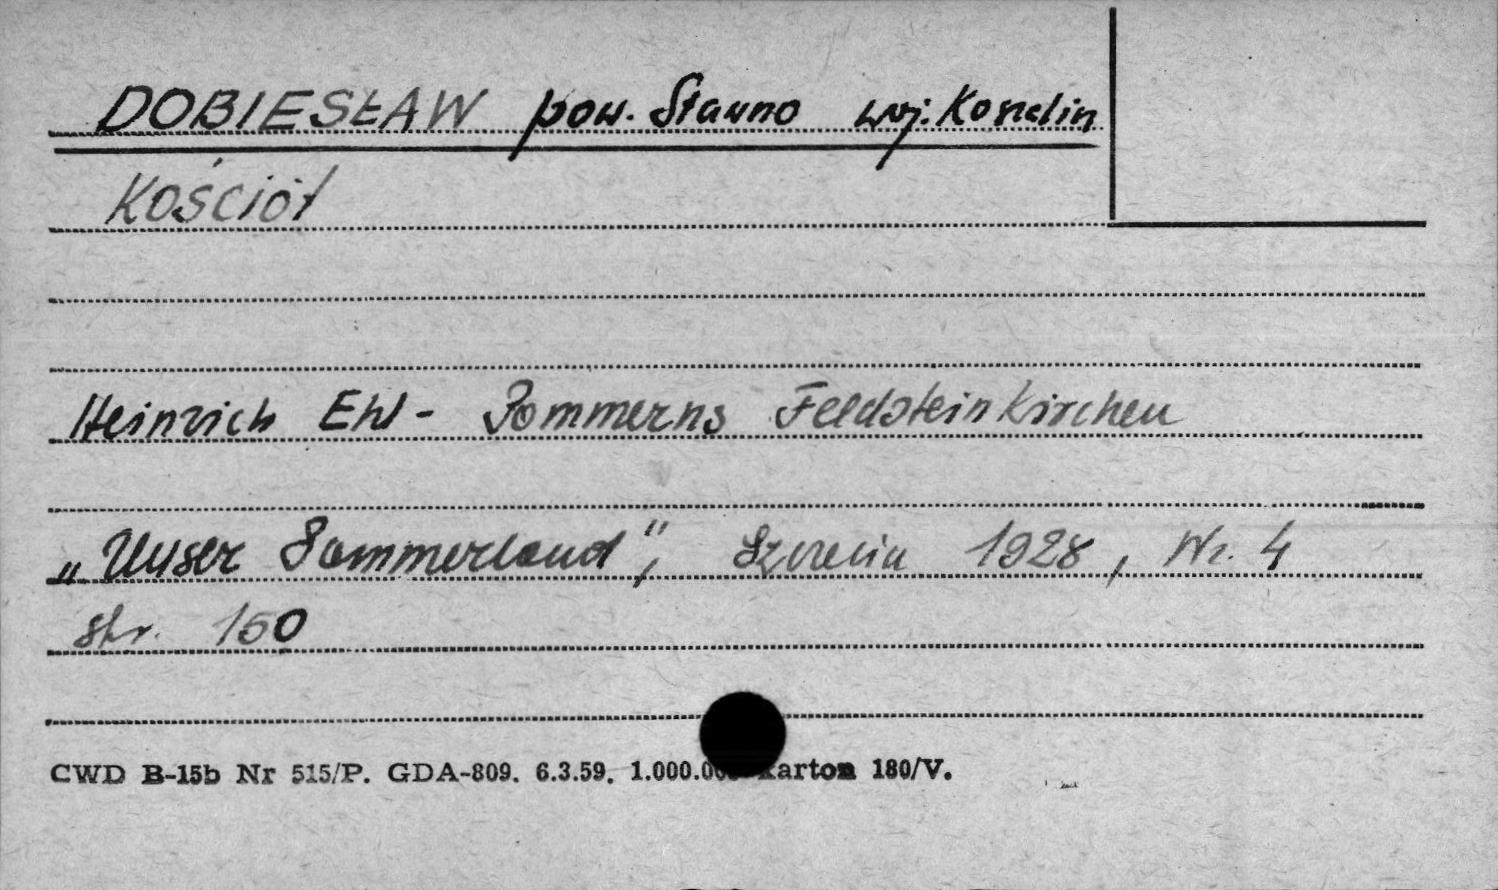 DOBIESŁAW pow. Sławno woj. Koszalin
Kościół
Heinrich Ehl - Pommerns Feldsteinkirchen
„Unser Pommerland”, Szczecin 1928, Nr. 4
str. 150
CWD B-15b Nr 515/P. GDA-809. 6.3.59. 1.000.000 karton 180/V.